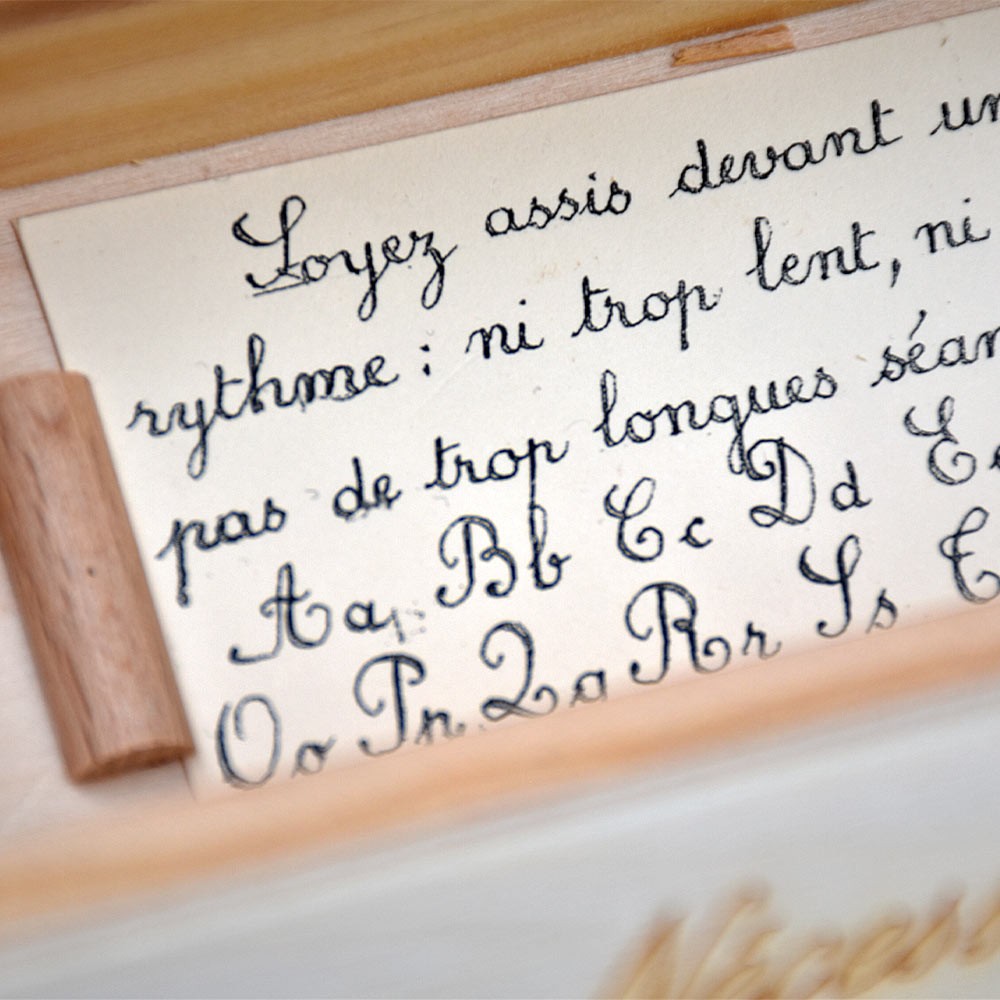 Soyez assis devant un
rythme : ni trop lent, ni
pas de trop longues séan
Aa Bb Cc Dd E
Oo Pp Qq Rr Ss T
Nécess